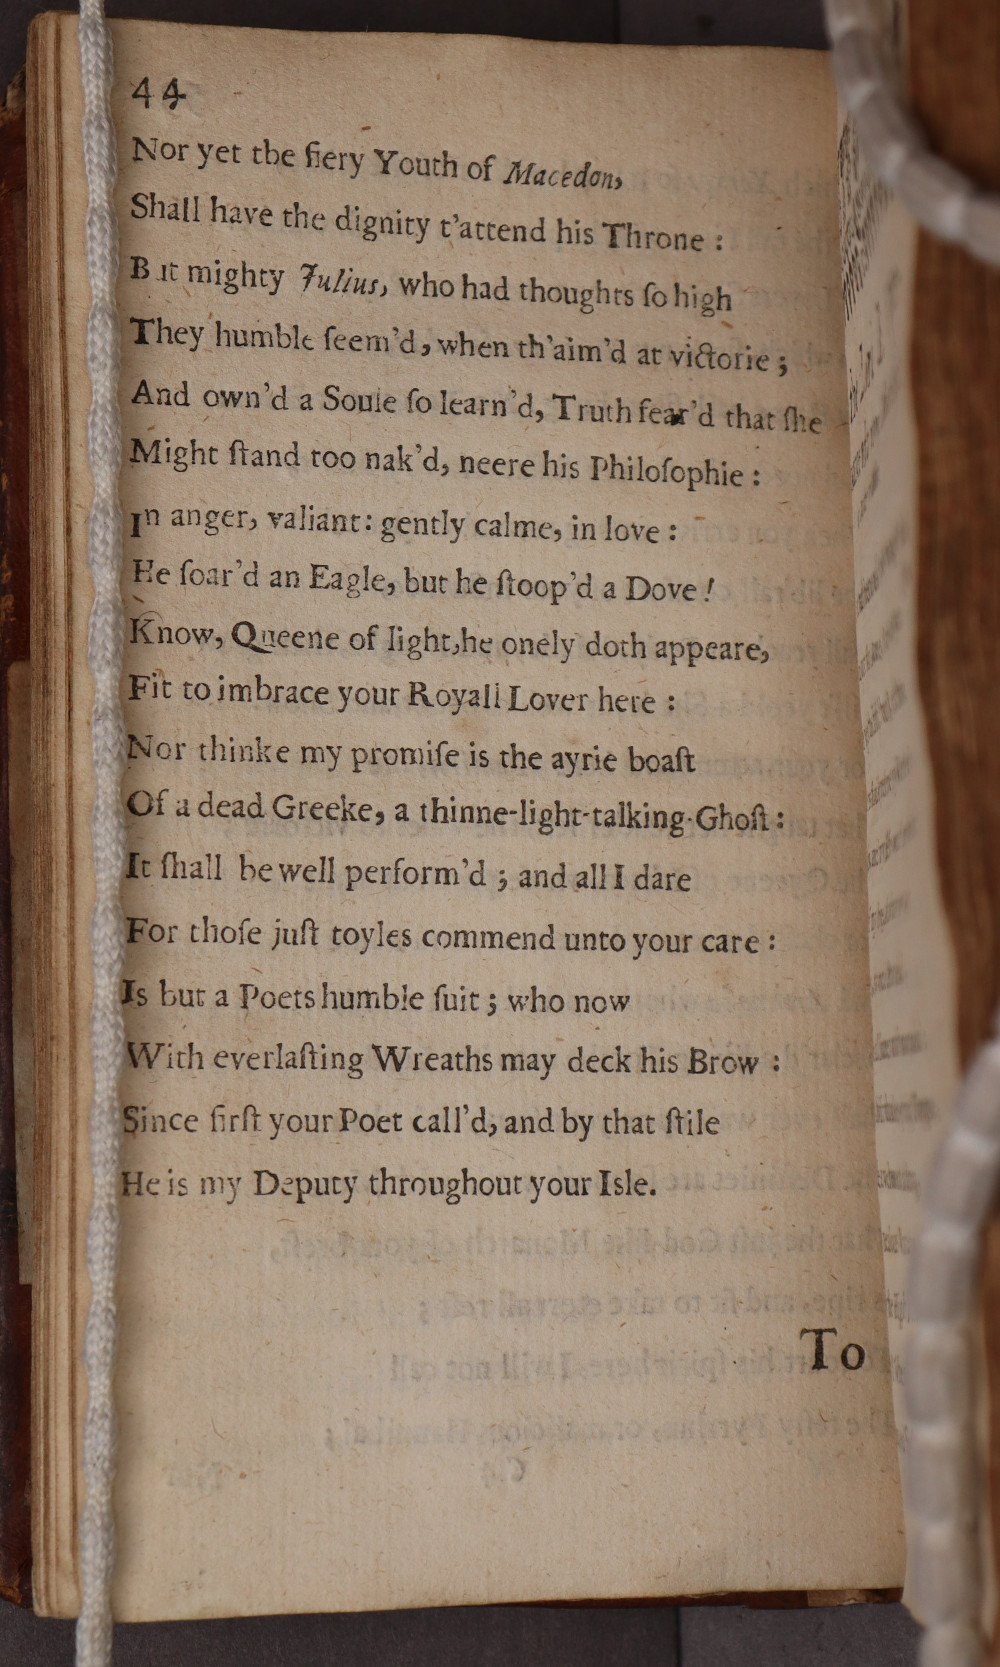 44
Nor yet the fiery Youth of Macedon,
Shall have the dignity t'attend his Throne :
But mighty Julius, who had thoughts ſo high
They humble ſeem'd, when th'aim'd at victorie ;
And own'd a Soule ſo learn'd, Truth fear'd that ſhe
Might ſtand too nak'd, neere his Philoſophie :
In anger, valiant: gently calme, in love :
He ſoar'd an Eagle, but he ſtoop'd a Dove !
Know, Queene of light,he onely doth appeare,
Fit to imbrace your Royall Lover here :
Nor thinke my promiſe is the ayrie boaſt
Of a dead Greeke, a thinne-light-talking-Ghoſt :
It ſhall be well perform'd ; and all I dare
For thoſe juſt toyles commend unto your care :
Is but a Poets humble ſuit ; who now
With everlaſting Wreaths may deck his Brow :
Since firſt your Poet call'd, and by that ſtile
He is my Deputy throughout your Isle.
To